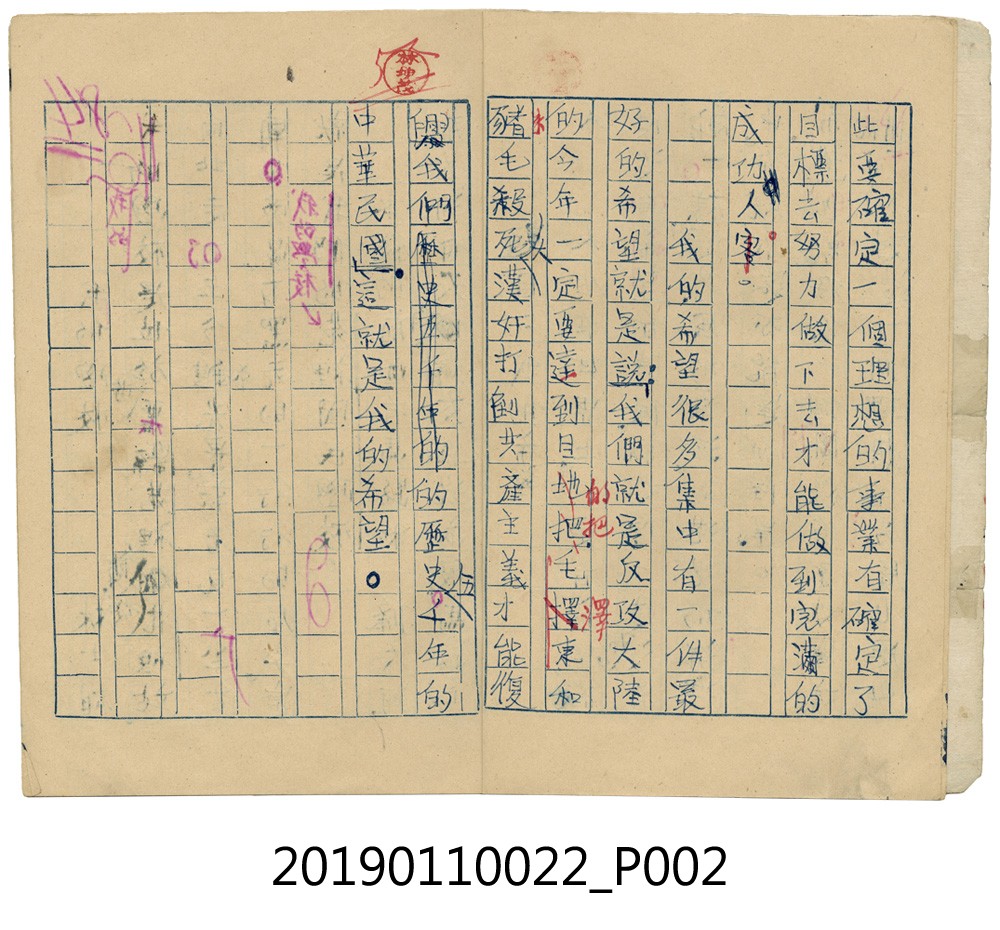 此要確定一個理想的事業有確定了
目標去努力做下去才能做到完滿的
成功人客。
我的希望很多集中有一件最
好的希望就是說：我們就是反攻大陸
的今年一定要達到目地把毛擇東和
的把
澤
朱
豬毛殺死漢奸打倒共產主義才能復
我們歷史五千仲的的歷史千年的
伍
中華民國這就是我的希望。
林坤茂
我的學校
20190110022_P002